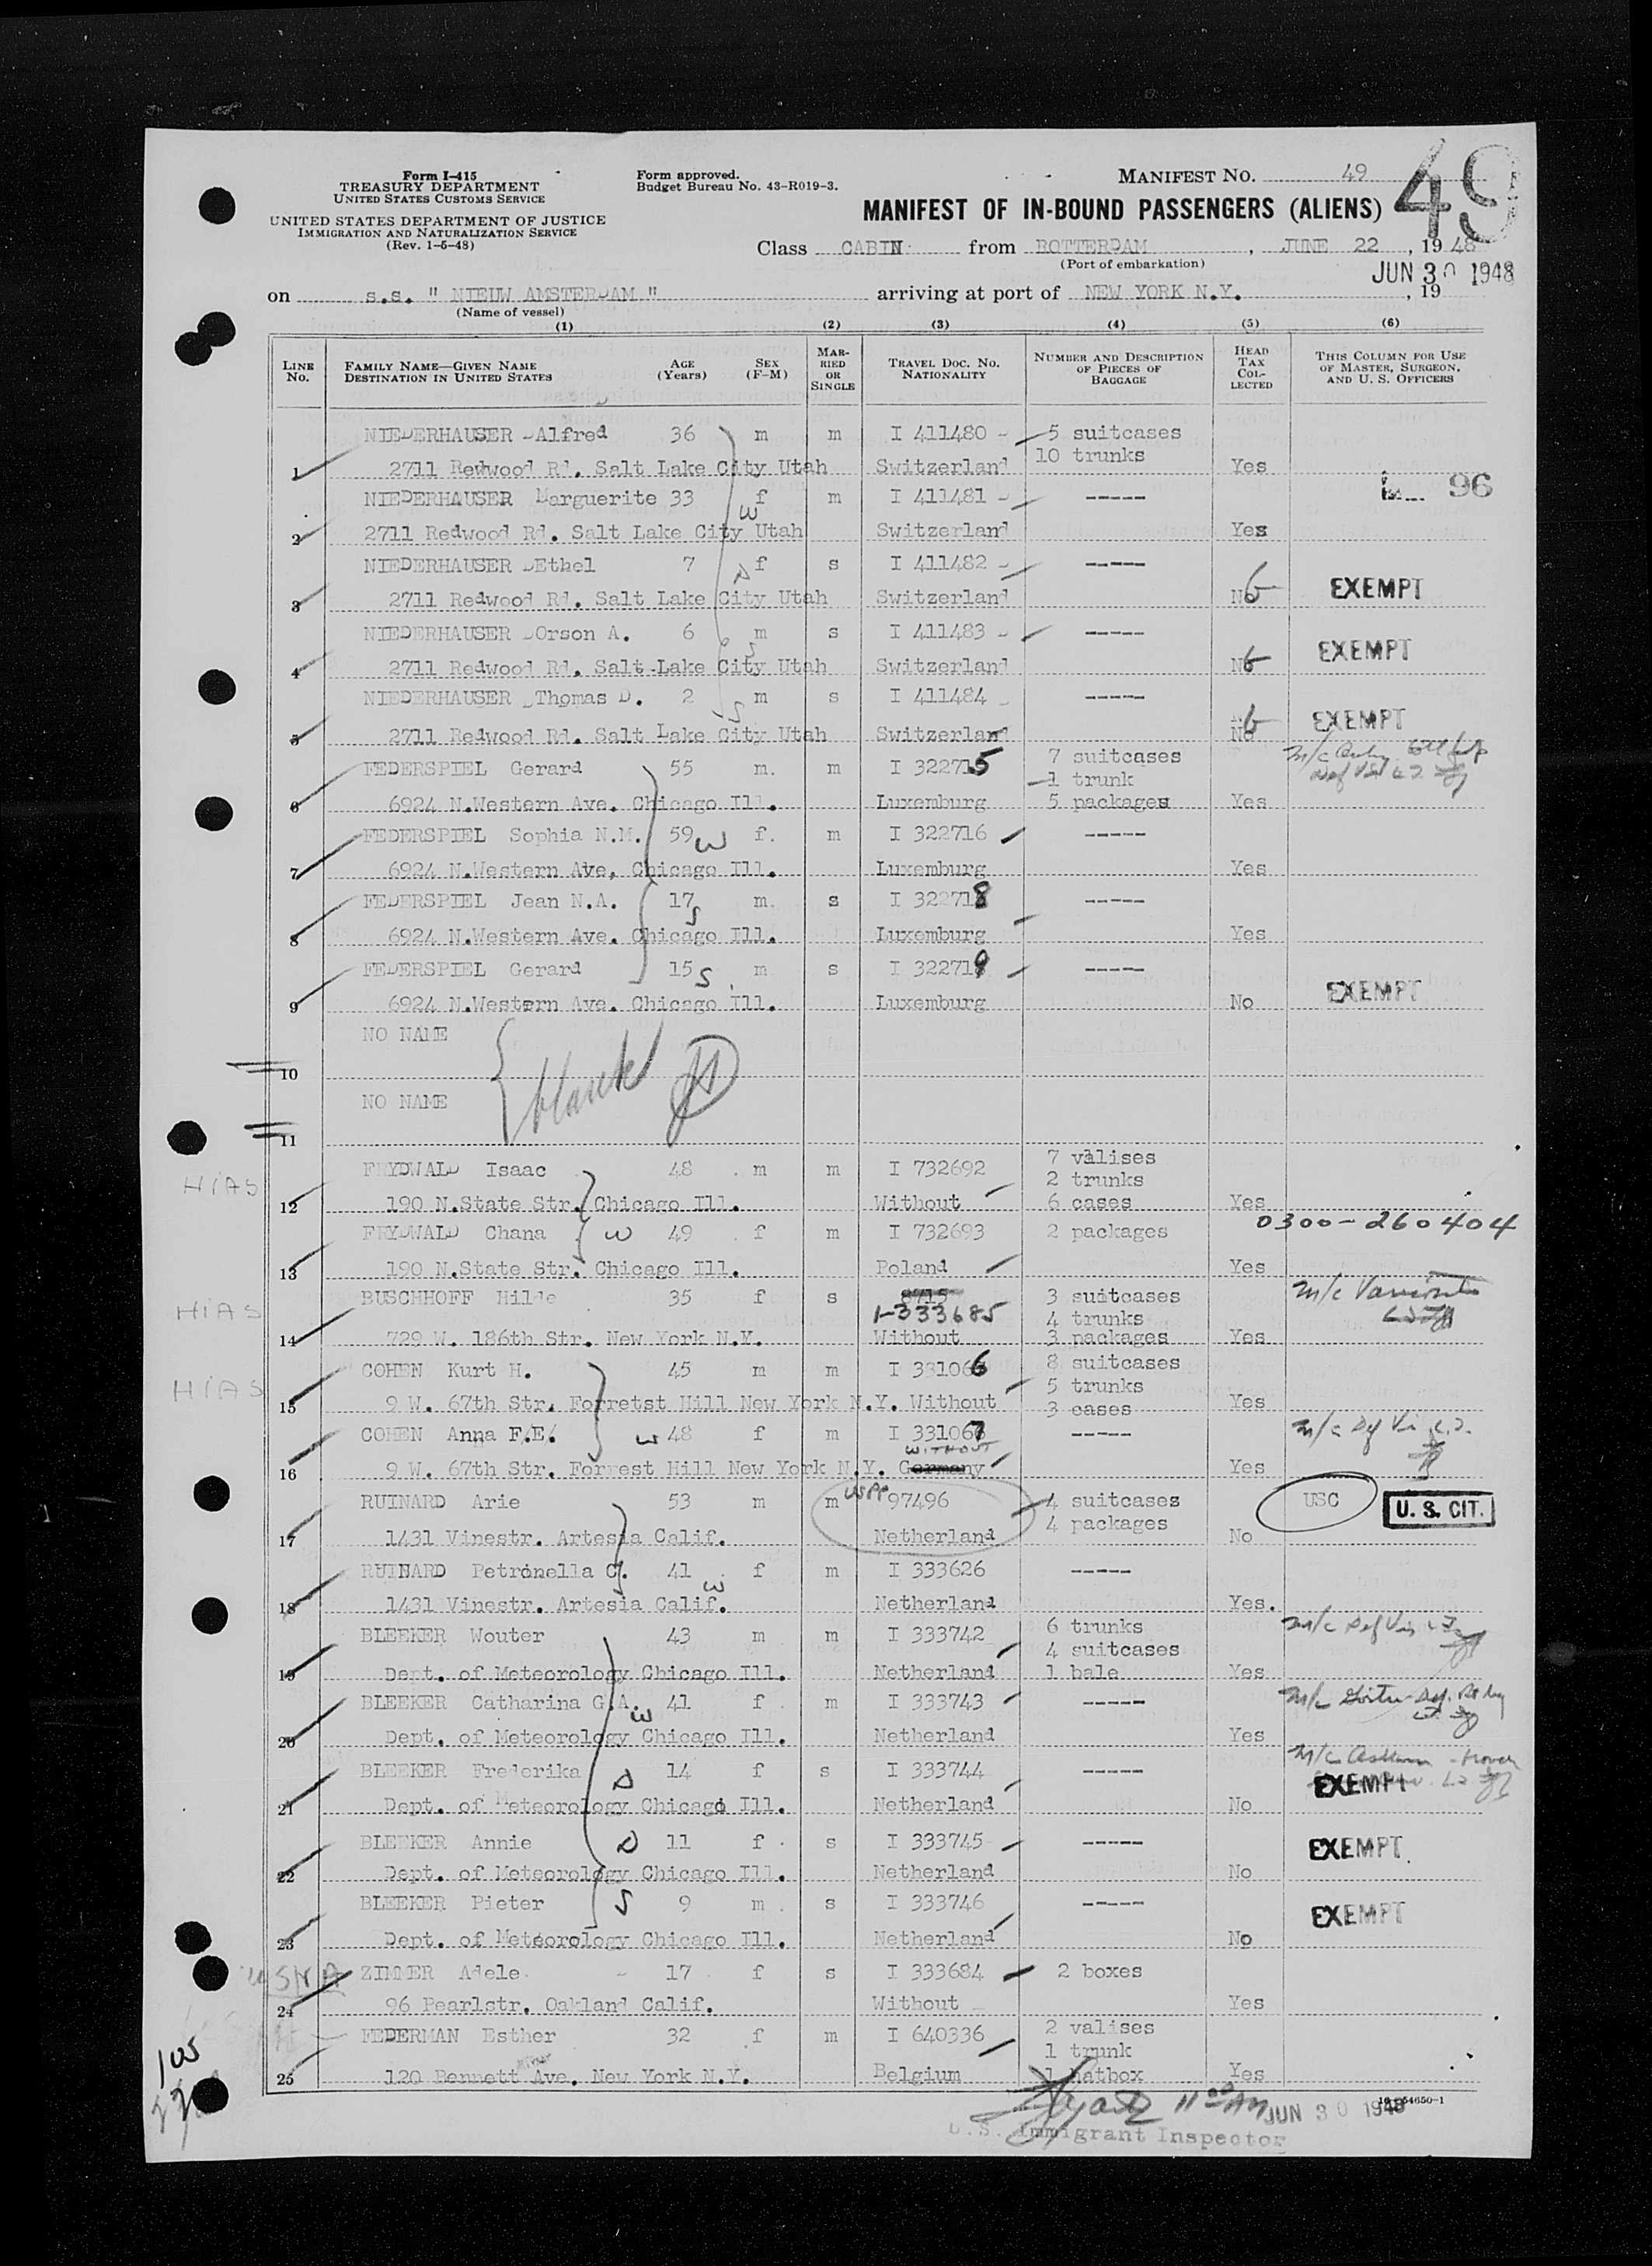 Form I-415
TREASURY DEPARTMENT
UNITED STATES CUSTOMS SERVICE
UNITED STATES DEPARTMENT OF JUSTICE
IMMIGRATION AND NATURALIZATION SERVICE
(Rev. 1-5-48)
Form approved.
Budget Bureau No. 43-R019-3.
MANIFEST NO. 49
49
MANIFEST OF IN-BOUND PASSENGERS (ALIENS)
Class CABIN from ROTTERDAM, JUNE 22, 1948
(Port of embarkation)
JUN 30 1948
on s.s. " NIEUW AMSTERDAM " arriving at port of NEW YORK N.Y., 19
(Name of vessel)
(1) (2) (3) (4) (5) (6)
LINE No. FAMILY NAME—GIVEN NAME DESTINATION IN UNITED STATES AGE (Years) SEX (F-M) MARRIED OR SINGLE TRAVEL DOC. NO. NATIONALITY NUMBER AND DESCRIPTION OF PIECES OF BAGGAGE HEAD TAX COLLECTED THIS COLUMN FOR USE OF MASTER, SURGEON, AND U. S. OFFICERS
NIEDERHAUSER -Alfred 36 m m I 411480 - 5 suitcases
10 trunks
1 2711 Redwood Rd. Salt Lake City Utah Switzerland Yes
96
NIEDERHAUSER Marguerite 33 f m I 411481 - -----
W
2 2711 Redwood Rd. Salt Lake City Utah Switzerland Yes
NIEDERHAUSER -Ethel 7 f s I 411482 - -----
D
3 2711 Redwood Rd. Salt Lake City Utah Switzerland No EXEMPT
NIEDERHAUSER -Orson A. 6 m s I 411483 - -----
S
4 2711 Redwood Rd. Salt Lake City Utah Switzerland No EXEMPT
NIEDERHAUSER Thomas D. 2 m s I 411484 - -----
S
5 2711 Redwood Rd. Salt Lake City Utah Switzerland No EXEMPT
FEDERSPIEL Gerard 55 m. m I 322715 7 suitcases
1 trunk
6 6924 N.Western Ave. Chicago Ill. Luxemburg 5 packages Yes
FEDERSPIEL Sophia N.M. 59 W f. m I 322716 -----
7 6924 N.Western Ave, Chicago Ill. Luxemburg Yes
FEDERSPIEL Jean N.A. 17 S m. s I 322718 -----
8 6924 N.Western Ave. Chicago Ill. Luxemburg Yes
FEDERSPIEL Gerard 15 S m s I 322719 -----
9 6924 N.Western Ave. Chicago Ill. Luxemburg No EXEMPT
NO NAME
10 blank
NO NAME
11
HIAS
FRYDWALD Isaac 48 m m I 732692 7 valises
2 trunks
12 190 N.State Str. Chicago Ill. Without 6 cases Yes
0300-260404
FRYDWALD Chana W 49 f m I 732693 2 packages
13 190 N.State Str. Chicago Ill. Poland Yes
HIAS
BUSCHHOFF Hilde 35 f s 8715 3 suitcases
I-333685 4 trunks
14 729 W. 186th Str. New York N.Y. Without 3 packages Yes
HIAS
COHEN Kurt H. 45 m m I 331066 8 suitcases
5 trunks
15 9 W. 67th Str. Forretst Hill New York N.Y. Without 3 cases Yes
COHEN Anna F.E. W 48 f m I 331067 -----
WITHOUT
16 9 W. 67th Str. Forrest Hill New York N.Y. Germany Yes
RUINARD Arie 53 m m USPP 97496 4 suitcases USC U. S. CIT.
4 packages
17 1431 Vinestr. Artesia Calif. Netherland No
RUINARD Petronella C. 41 f m I 333626 -----
W
18 1431 Vinestr. Artesia Calif. Netherland Yes.
BLEEKER Wouter 43 m m I 333742 6 trunks
4 suitcases
19 Dept. of Meteorology Chicago Ill. Netherland 1 bale Yes
BLEEKER Catharina G.A. W 41 f m I 333743 -----
20 Dept. of Meteorology Chicago Ill. Netherland Yes
BLEEKER Frederika D 14 f s I 333744 ----- EXEMPT
21 Dept. of Meteorology Chicago Ill. Netherland No
BLEEKER Annie D 11 f s I 333745 ----- EXEMPT
22 Dept. of Meteorology Chicago Ill. Netherland No
BLEEKER Pieter S 9 m s I 333746 ----- EXEMPT
23 Dept. of Meteorology Chicago Ill. Netherland No
USNA
ZIMMER Adele 17 f s I 333684 2 boxes
24 96 Pearlstr. Oakland Calif. Without Yes
FEDERMAN Esther 32 f m I 640336 2 valises
1 trunk
25 120 Bennett Ave. New York N.Y. Belgium 1 hatbox Yes
11 00 AM JUN 30 1948
U.S. Immigrant Inspector